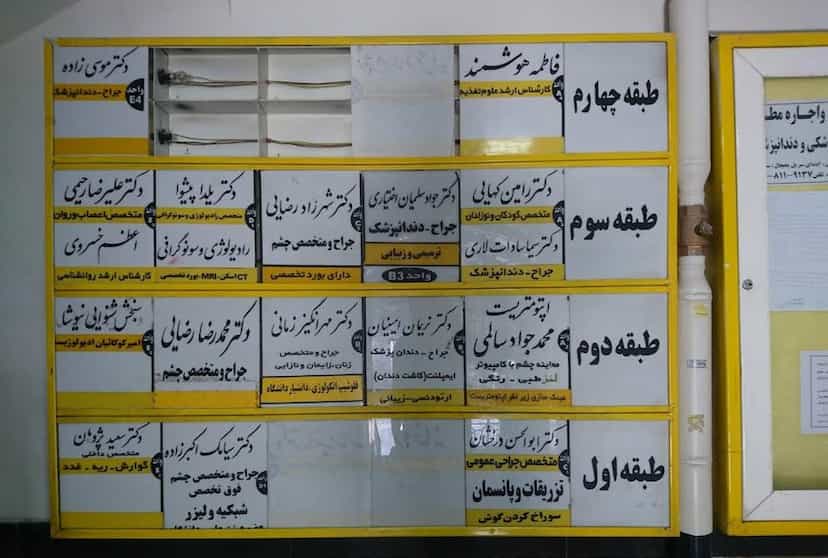 طبقه چهارم
فاطمه هوشمند
کارشناس ارشد علوم تغذیه
دکتر موسی زاده
جراح-دندانپزشک
واحد
E4
طبقه سوم
دکتر رامین کهایی
متخصص کودکان و نوزادان
دکتر سیما سادات لاری
جراح-دندانپزشک
دکتر جواد سلمان اختیاری
جراح-دندانپزشک
ترمیمی و زیبایی
واحد B3
دکتر شرزاد رضایی
جراح و متخصص چشم
دارای بورد تخصصی
دکتر یلدا پیشوا
متخصص رادیولوژی و سونوگرافی
رادیولوژی و سونوگرافی
CT اسکن-MRI-بورد تخصصی
دکتر علیرضا رحیمی
متخصص اعصاب و روان
اعظم خسروی
کارشناس ارشد روانشناسی
طبقه دوم
اپتومتریست
محمد جواد سالمی
معاینه چشم با کامپیوتر
لنز طبی - رنگی
عینک سازی زیر نظر اپتومتریست
دکتر نریمان امینیان
جراح - دندان پزشک
ایمپلنت (کاشت دندان)
ارتودنسی-زیبائی
دکتر مهرانگیز زمانی
جراح و متخصص
زنان، زایمان و نازایی
فلوشیپ انکولوژی، دانشیار دانشگاه
دکتر محمدرضا رضایی
جراح و متخصص چشم
سنجش شنوایی نیوشا
امیر کوکائیان ادیولوژیست
طبقه اول
دکتر ابوالحسن درخشان
متخصص جراحی عمومی
تزریقات و پانسمان
سوراخ کردن گوش
دکتر سیامک اکبرزاده
جراح و متخصص چشم
فوق تخصص
شبکیه و لیزر
دکتر سعید پژوهان
متخصص داخلی
گوارش - ریه - غدد
واجاره مط
شکی و دندانپزش